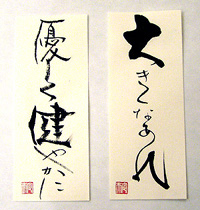 大きくなあれ
優しく健やかに